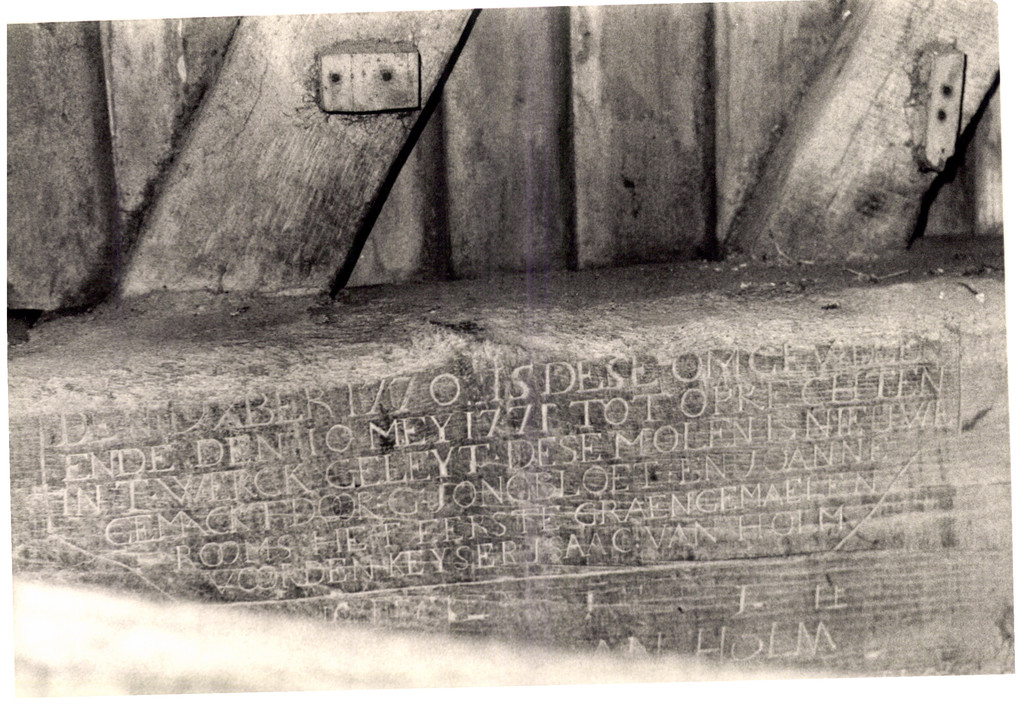 DEN 1 DXBER 1770 IS DESE OMGEWEIIT
ENDE DEN 10 MEY 1771 TOT OPRECHTEN
IN T WERCK GELEYT DESE MOLEN IS NIEUWE
GEMACKT DOOR G JONGBLOET EN J JANNE
ROOMS HET EERSTE GRAEN GEMAELEEN
VOOR DEN KEYSER ISAAC VAN HOLM
HOLM